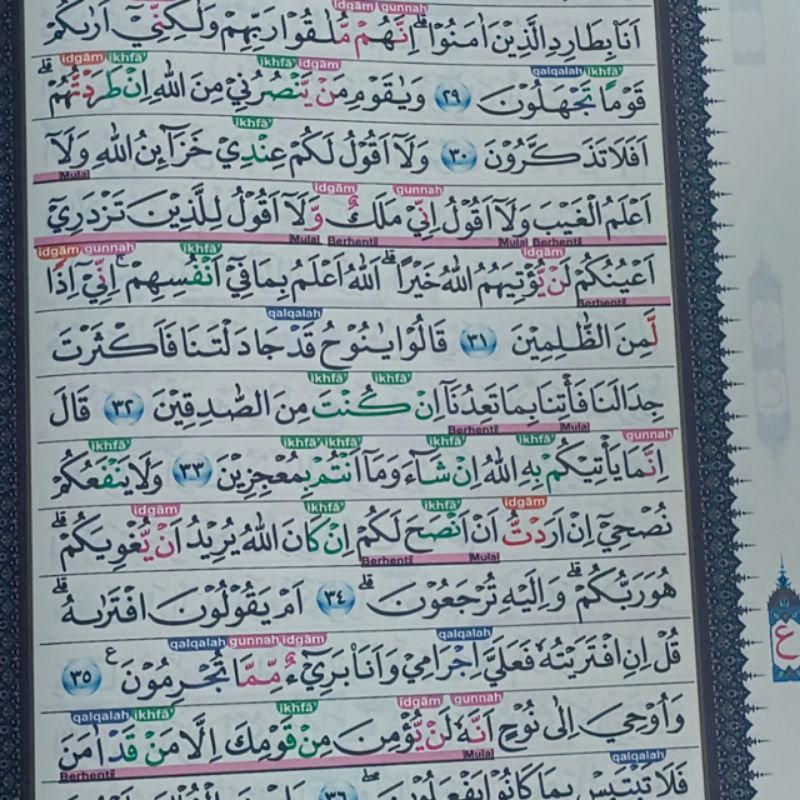 idgām gunnah
اَنَا۠ بِطَارِدِ الَّذِيْنَ اٰمَنُوْاۗ اِنَّهُمْ مُّلٰقُوْا رَبِّهِمْ وَلٰكِنِّيْٓ اَرٰىكُمْ
idgām ikhfā' ikhfā' idgām qalqalah ikhfā'
قَوْمًا تَجْهَلُوْنَ ٢٩ وَيٰقَوْمِ مَنْ يَّنْصُرُنِيْ مِنَ اللّٰهِ اِنْ طَرَدْتُّهُمْۗ
ikhfā'
اَفَلَا تَذَكَّرُوْنَ ٣٠ وَلَآ اَقُوْلُ لَكُمْ عِنْدِيْ خَزَاۤىِٕنُ اللّٰهِ وَلَآ
Mulai idgām gunnah
اَعْلَمُ الْغَيْبَ وَلَآ اَقُوْلُ اِنِّيْ مَلَكٌ وَّلَآ اَقُوْلُ لِلَّذِيْنَ تَزْدَرِيْٓ
Mulai Berhenti Mulai Berhenti
idgām gunnah ikhfā' idgām
اَعْيُنُكُمْ لَنْ يُّؤْتِيَهُمُ اللّٰهُ خَيْرًاۗ اَللّٰهُ اَعْلَمُ بِمَا فِيْٓ اَنْفُسِهِمْۚ اِنِّيْٓ اِذًا
Berhenti
qalqalah
لَّمِنَ الظّٰلِمِيْنَ ٣١ قَالُوْا يٰنُوْحُ قَدْ جَادَلْتَنَا فَاَكْثَرْتَ
ikhfā' ikhfā'
جِدَالَنَا فَأْتِنَا بِمَا تَعِدُنَآ اِنْ كُنْتَ مِنَ الصّٰدِقِيْنَ ٣٢ قَالَ
Berhenti Mulai
ikhfā' ikhfā' ikhfā' ikhfā' ikhfā' gunnah
اِنَّمَا يَأْتِيْكُمْ بِهِ اللّٰهُ اِنْ شَاۤءَ وَمَآ اَنْتُمْ بِمُعْجِزِيْنَ ٣٣ وَلَا يَنْفَعُكُمْ
idgām ikhfā' ikhfā' idgām
نُصْحِيْٓ اِنْ اَرَدْتُّ اَنْ اَنْصَحَ لَكُمْ اِنْ كَانَ اللّٰهُ يُرِيْدُ اَنْ يُّغْوِيَكُمْۗ
Berhenti Mulai
هُوَ رَبُّكُمْۗ وَاِلَيْهِ تُرْجَعُوْنَۗ ٣٤ اَمْ يَقُوْلُوْنَ افْتَرٰىهُۗ
qalqalah gunnah idgām qalqalah
قُلْ اِنِ افْتَرَيْتُهٗ فَعَلَيَّ اِجْرَامِيْ وَاَنَا۠ بَرِيْۤءٌ مِّمَّا تُجْرِمُوْنَ ࣖ ٣٥
qalqalah ikhfā' ikhfā' idgām gunnah
وَاُوْحِيَ اِلٰى نُوْحٍ اَنَّهٗ لَنْ يُّؤْمِنَ مِنْ قَوْمِكَ اِلَّا مَنْ قَدْ اٰمَنَ
Berhenti Mulai qalqalah
فَلَا تَبْتَىِٕسْ بِمَا كَانُوْا يَفْعَلُوْنَ ٣٦
ع